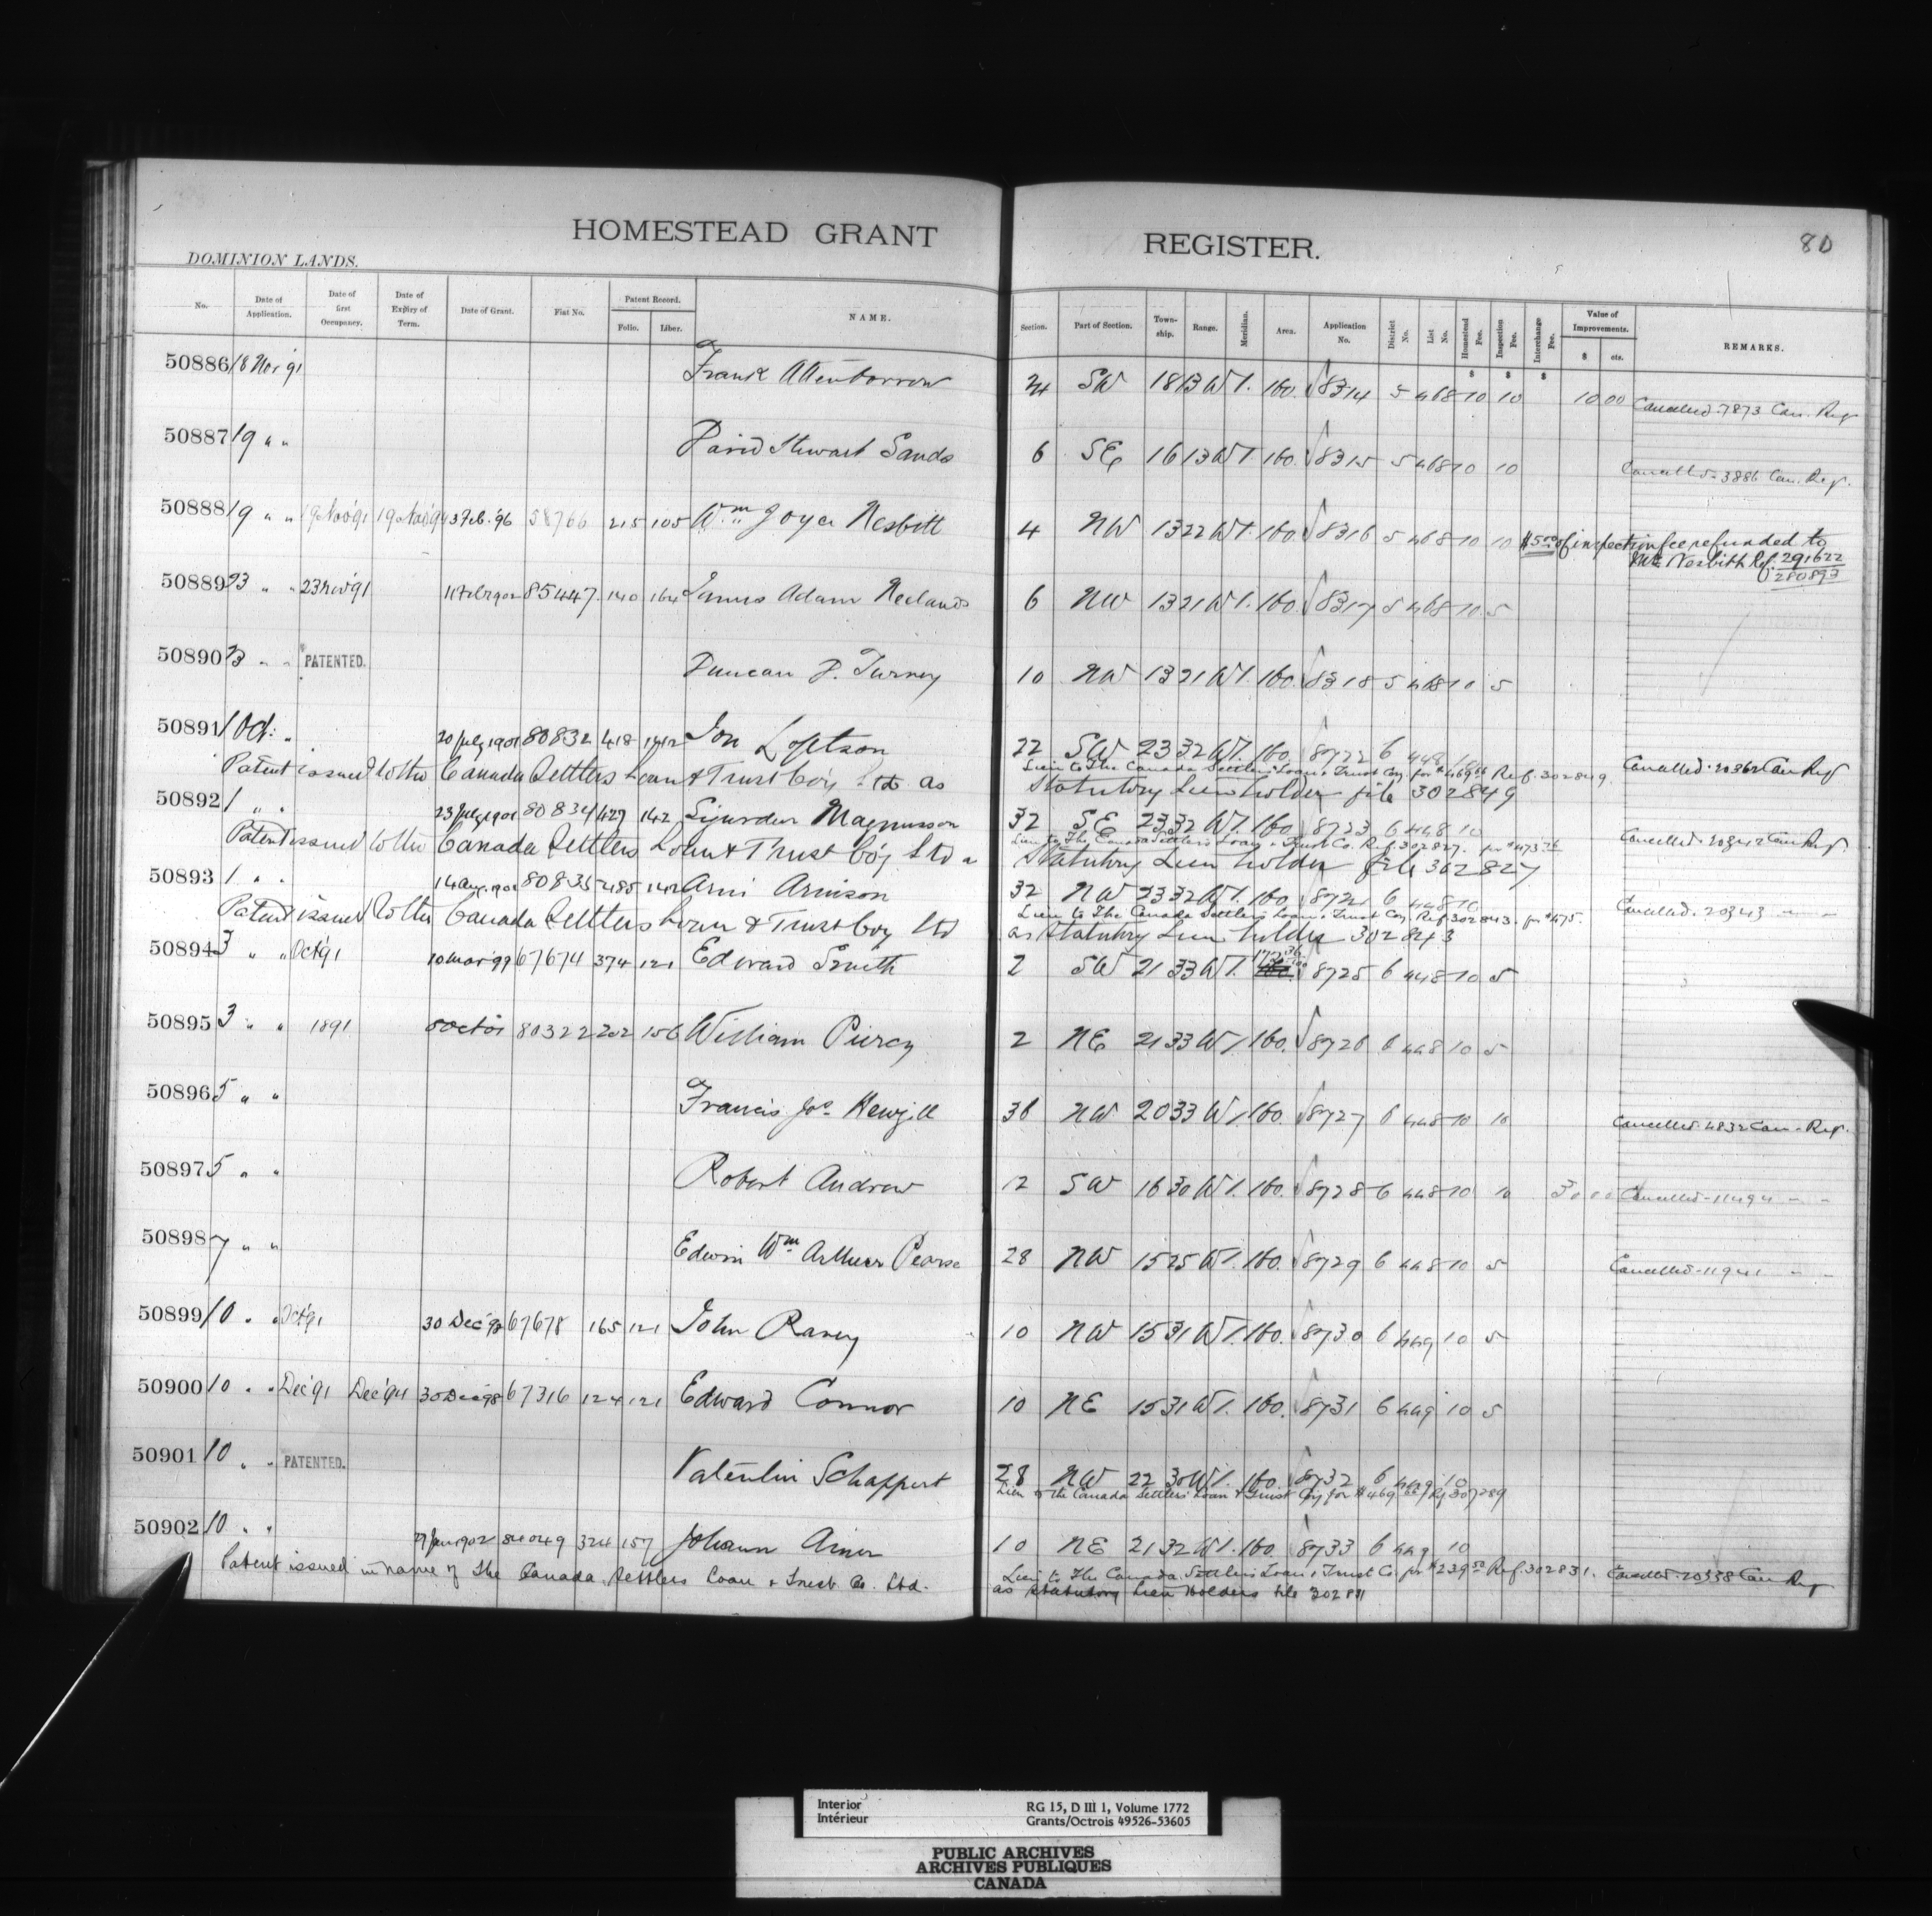 HOMESTEAD GRANT REGISTER. 80
DOMINION LANDS.
No. Date of Application. Date of first Occupancy. Date of Expiry of Term. Date of Grant. Fiat No. Patent Record. Folio. Liber. NAME. Section. Part of Section. Town-ship. Range. Meridian. Area. Application No. District No. List No. Homestead Fee. Inspection Fee. Interchange Fee. Value of Improvements. $ cts. REMARKS.
50886 18 Nov 91 Frank Attenborrow 24 SW 18 13 W1. 160. 8314 5 468 10 10 10 00 Cancelled 7873 Can. Reg
50887 19 " " David Stewart Sands 6 SE 16 13 W1. 160. 8315 5 468 10 10 Cancelled 3886 Can. Reg.
50888 19 " " 19 Nov '91 19 Nov '94 3 Feb. '96 58766 215 105 Wm Joyce Nesbitt 4 NW 13 22 W1. 160. 8316 5 468 10 10 $5.00 of inspection fee refunded to
Mr Nesbitt Ref. 291622
280893
50889 23 " " 23 Nov '91 11 Feb 1902 85447 140 164 James Adam Neelands 6 NW 13 21 W1. 160. 8317 5 468 10 5
50890 23 " " PATENTED. Duncan P. Turney 10 NW 13 21 W1. 160. 8318 5 468 10 5
50891 1 Oct. " 20 July 1901 80832 418 142 Jon Loptson 22 SW 23 32 W1. 160. 8722 6 448 10 Cancelled 20362 Can Reg
Lien to The Canada Settlers Loan & Trust Coy. for $469 Ref. 302849
Patent issued to the Canada Settlers Loan & Trust Coy Ltd as Statutory Lien holder file 302849
50892 1 " " 23 July 1901 80834 427 142 Sigurdur Magnusson 32 SE 23 32 W1. 160 8723 6 448 10 Cancelled 20342 Can Reg.
Lien to The Canada Settlers Loan & Trust Co. Ref. 302827. for $473
Patent issued to the Canada Settlers Loan & Trust Coy Ltd Statutory Lien holder file 302827
50893 1 " " 14 Aug. 1901 80835 485 142 Arni Arnison 32 NW 23 32 W1. 160 8724 6 448 10 Cancelled. 20343 " "
Lien to The Canada Settlers Loan & Trust Coy. Ref. 302843. for $475.
Patent issued to the Canada Settlers Loan & Trust Coy Ltd as Statutory Lien holder 302843
50894 3 " " Oct '91 10 Mar '99 67674 374 121 Edward Smith 2 SW 21 33 W1. 8725 6 448 10 5
50895 3 " " 1891 5 Oct 01 80322 202 156 William Piercy 2 NE 21 33 W1. 160. 8726 6 448 10 5
50896 5 " " Francis Jos. Hewgill 36 NW 20 33 W1. 160. 8727 6 448 10 10 Cancelled 4832 Can. Reg.
50897 5 " " Robert Andrew 12 SW 16 30 W1. 160. 8728 6 448 10 10 Cancelled 11494 " "
50898 7 " " Edwin Wm Arthur Pearse 28 NW 15 25 W1. 160. 8729 6 448 10 5 Cancelled 11941 " "
50899 10 " " Oct '91 30 Dec '98 67678 165 121 John Raney 10 NW 15 31 W1. 160. 8730 6 449 10 5
50900 10 " " Dec '91 Dec '94 30 Dec '98 67316 124 121 Edward Connor 10 NE 15 31 W1. 160. 8731 6 449 10 5
50901 10 " " PATENTED. Valentin Schappert 28 NW 22 30 W1. 160. 8732 6 449 10
Lien to the Canada Settlers Loan & Trust Coy for $469 Ref 307289
50902 10 " " 27 Jan 1902 84049 324 157 Johann Einer 10 NE 21 32 W1. 160. 8733 6 449 10
Lien to The Canada Settlers Loan & Trust Co. for $239 Ref. 302831. Cancelled 20338 Can Reg
Patent issued in name of the Canada Settlers Loan & Trust Co. Ltd. as Statutory Lien Holders file 302831
Interior RG 15, D III 1, Volume 1772
Intérieur Grants/Octrois 49526-53605
PUBLIC ARCHIVES
ARCHIVES PUBLIQUES
CANADA